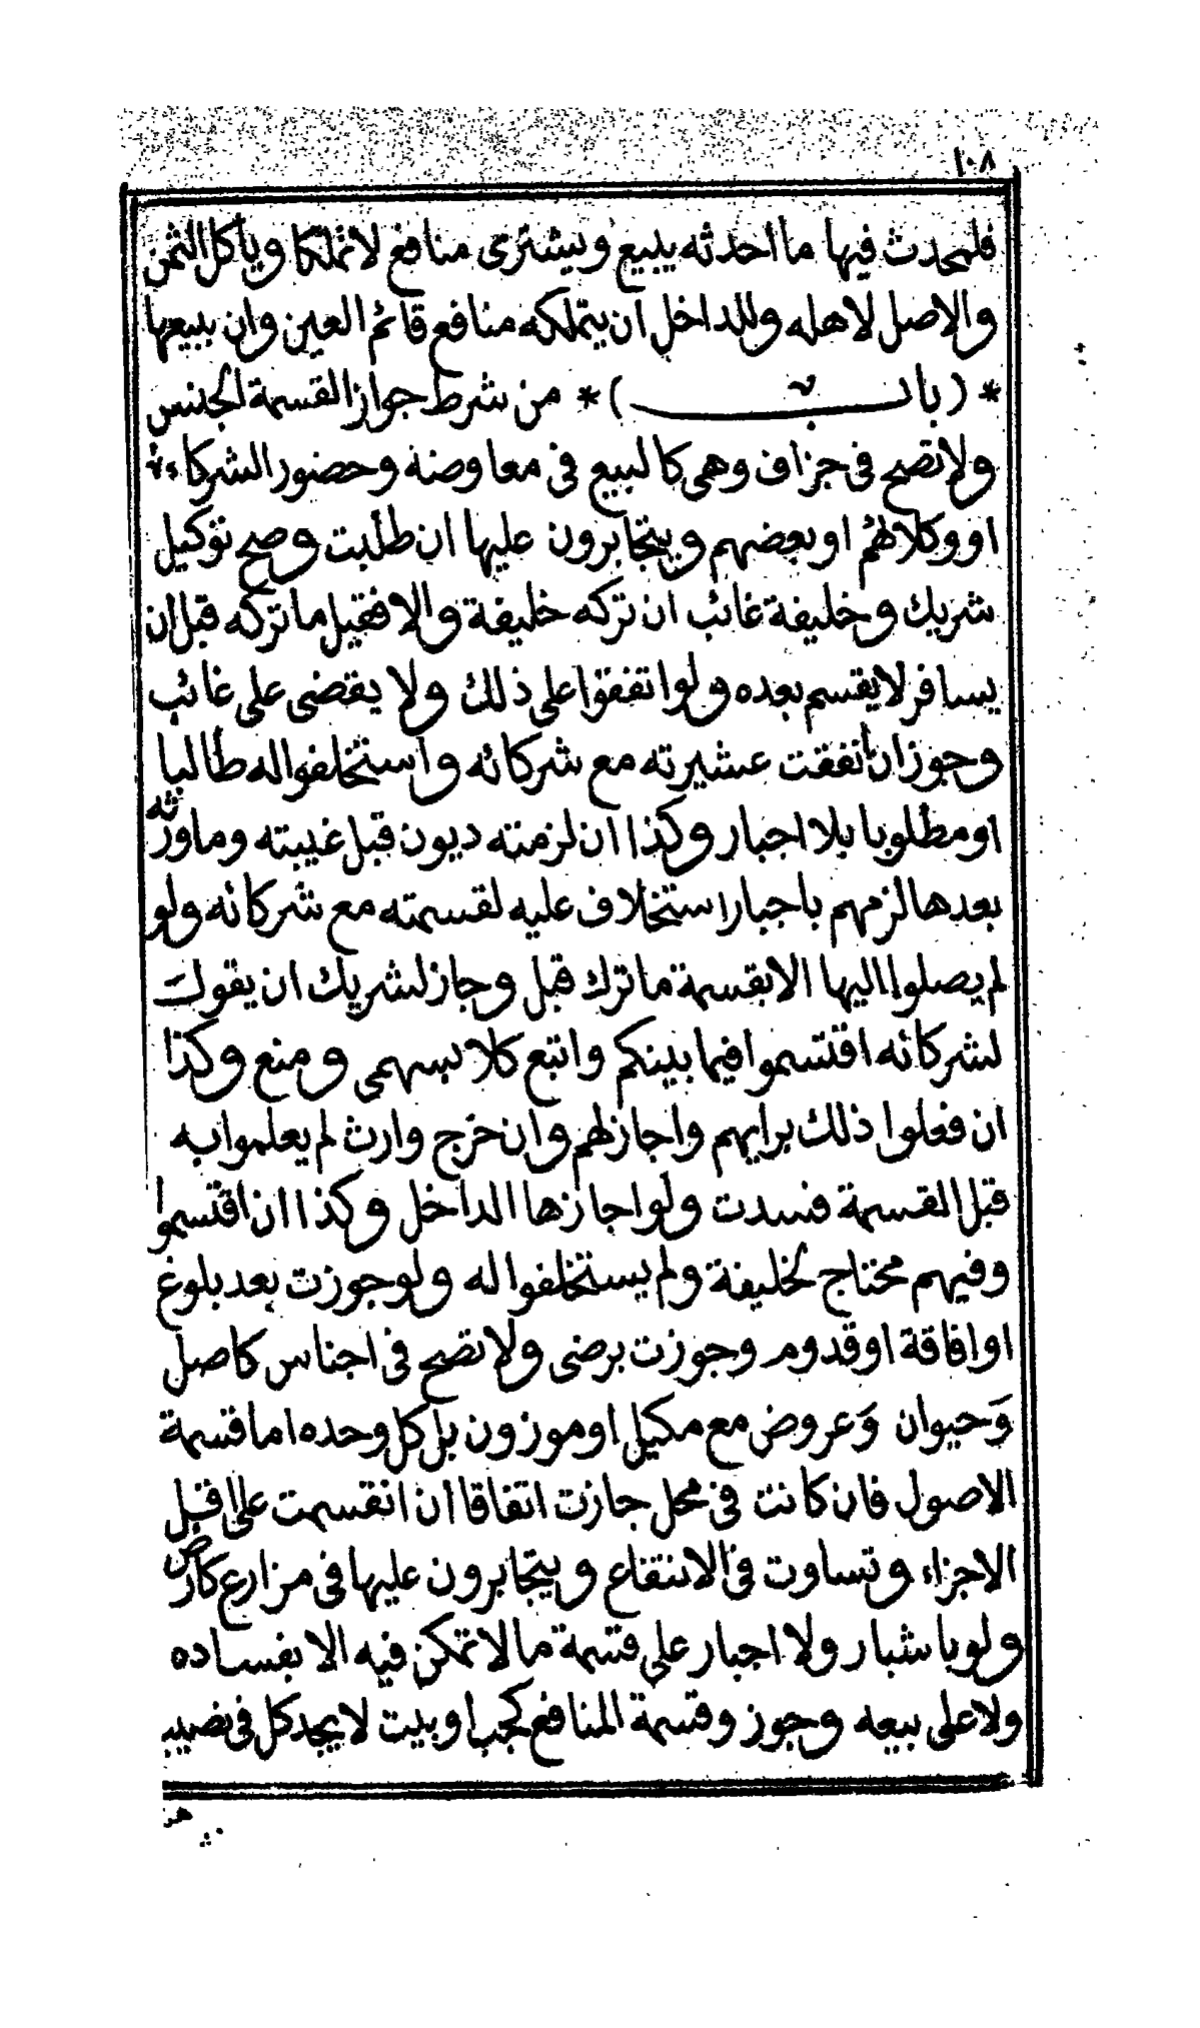 ١٠٨
فلمحدث فيها ما احدثه يبيع ويشترى منافع لا تملكا وياكل الثمن
والاصل لاهله وللداخل ان يتملكه منافع قائم العين وان ببيعها
* (باب) * من شرط جواز القسمة الجنس
ولا تصح فى جزاف وهى كالبيع فى معاوضة وحضور الشركاء
او وكلائهم او بعضهم ويتجابرون عليها ان طلبت وصح توكيل
شريك وخليفة غائب ان تركه خليفة والا فقيل ما تركه قبل ان
يسافر لا يقسم بعده ولو اتفقوا على ذلك ولا يقضى على غائب
وجوز ان اتفقت عشيرته مع شركائه واستخلفوا له طالبا
او مطلوبا بلا اجبار وكذا ان لزمته ديون قبل غيبته وما ورثه
بعدها لزمهم باجبار استخلاف عليه لقسمته مع شركائه ولو
لم يصلوا اليها الا بقسمة ما ترك قبل وجاز لشريك ان يقول
لشركائه اقتسموا فيما بينكم واتبع كلا بسهمى ومنع وكذا
ان فعلوا ذلك برايهم واجاز لهم وان خرج وارث لم يعلموا به
قبل القسمة فسدت ولو اجازها الداخل وكذا ان اقتسموا
وفيهم محتاج لخليفة ولم يستخلفوا له ولو جوزت بعد بلوغ
او افاقة او قدوم وجوزت برضى ولا تصح فى اجناس كاصل
وَحيوان وَعروض مع مكيل او موزون بل كل وحده اما قسمة
الاصول فان كانت فى محل جازت اتفاقا ان انقسمت على اقل
الاجزاء وتساوت فى الانتفاع ويتجابرون عليها فى مزارع كارض
ولو باشبار ولا اجبار على قسمة ما لا تمكن فيه الا بفساده
ولا على بيعه وجوز وقسمة المنافع كجب او بيت لا يجد كل فى نصيبـ
ـه